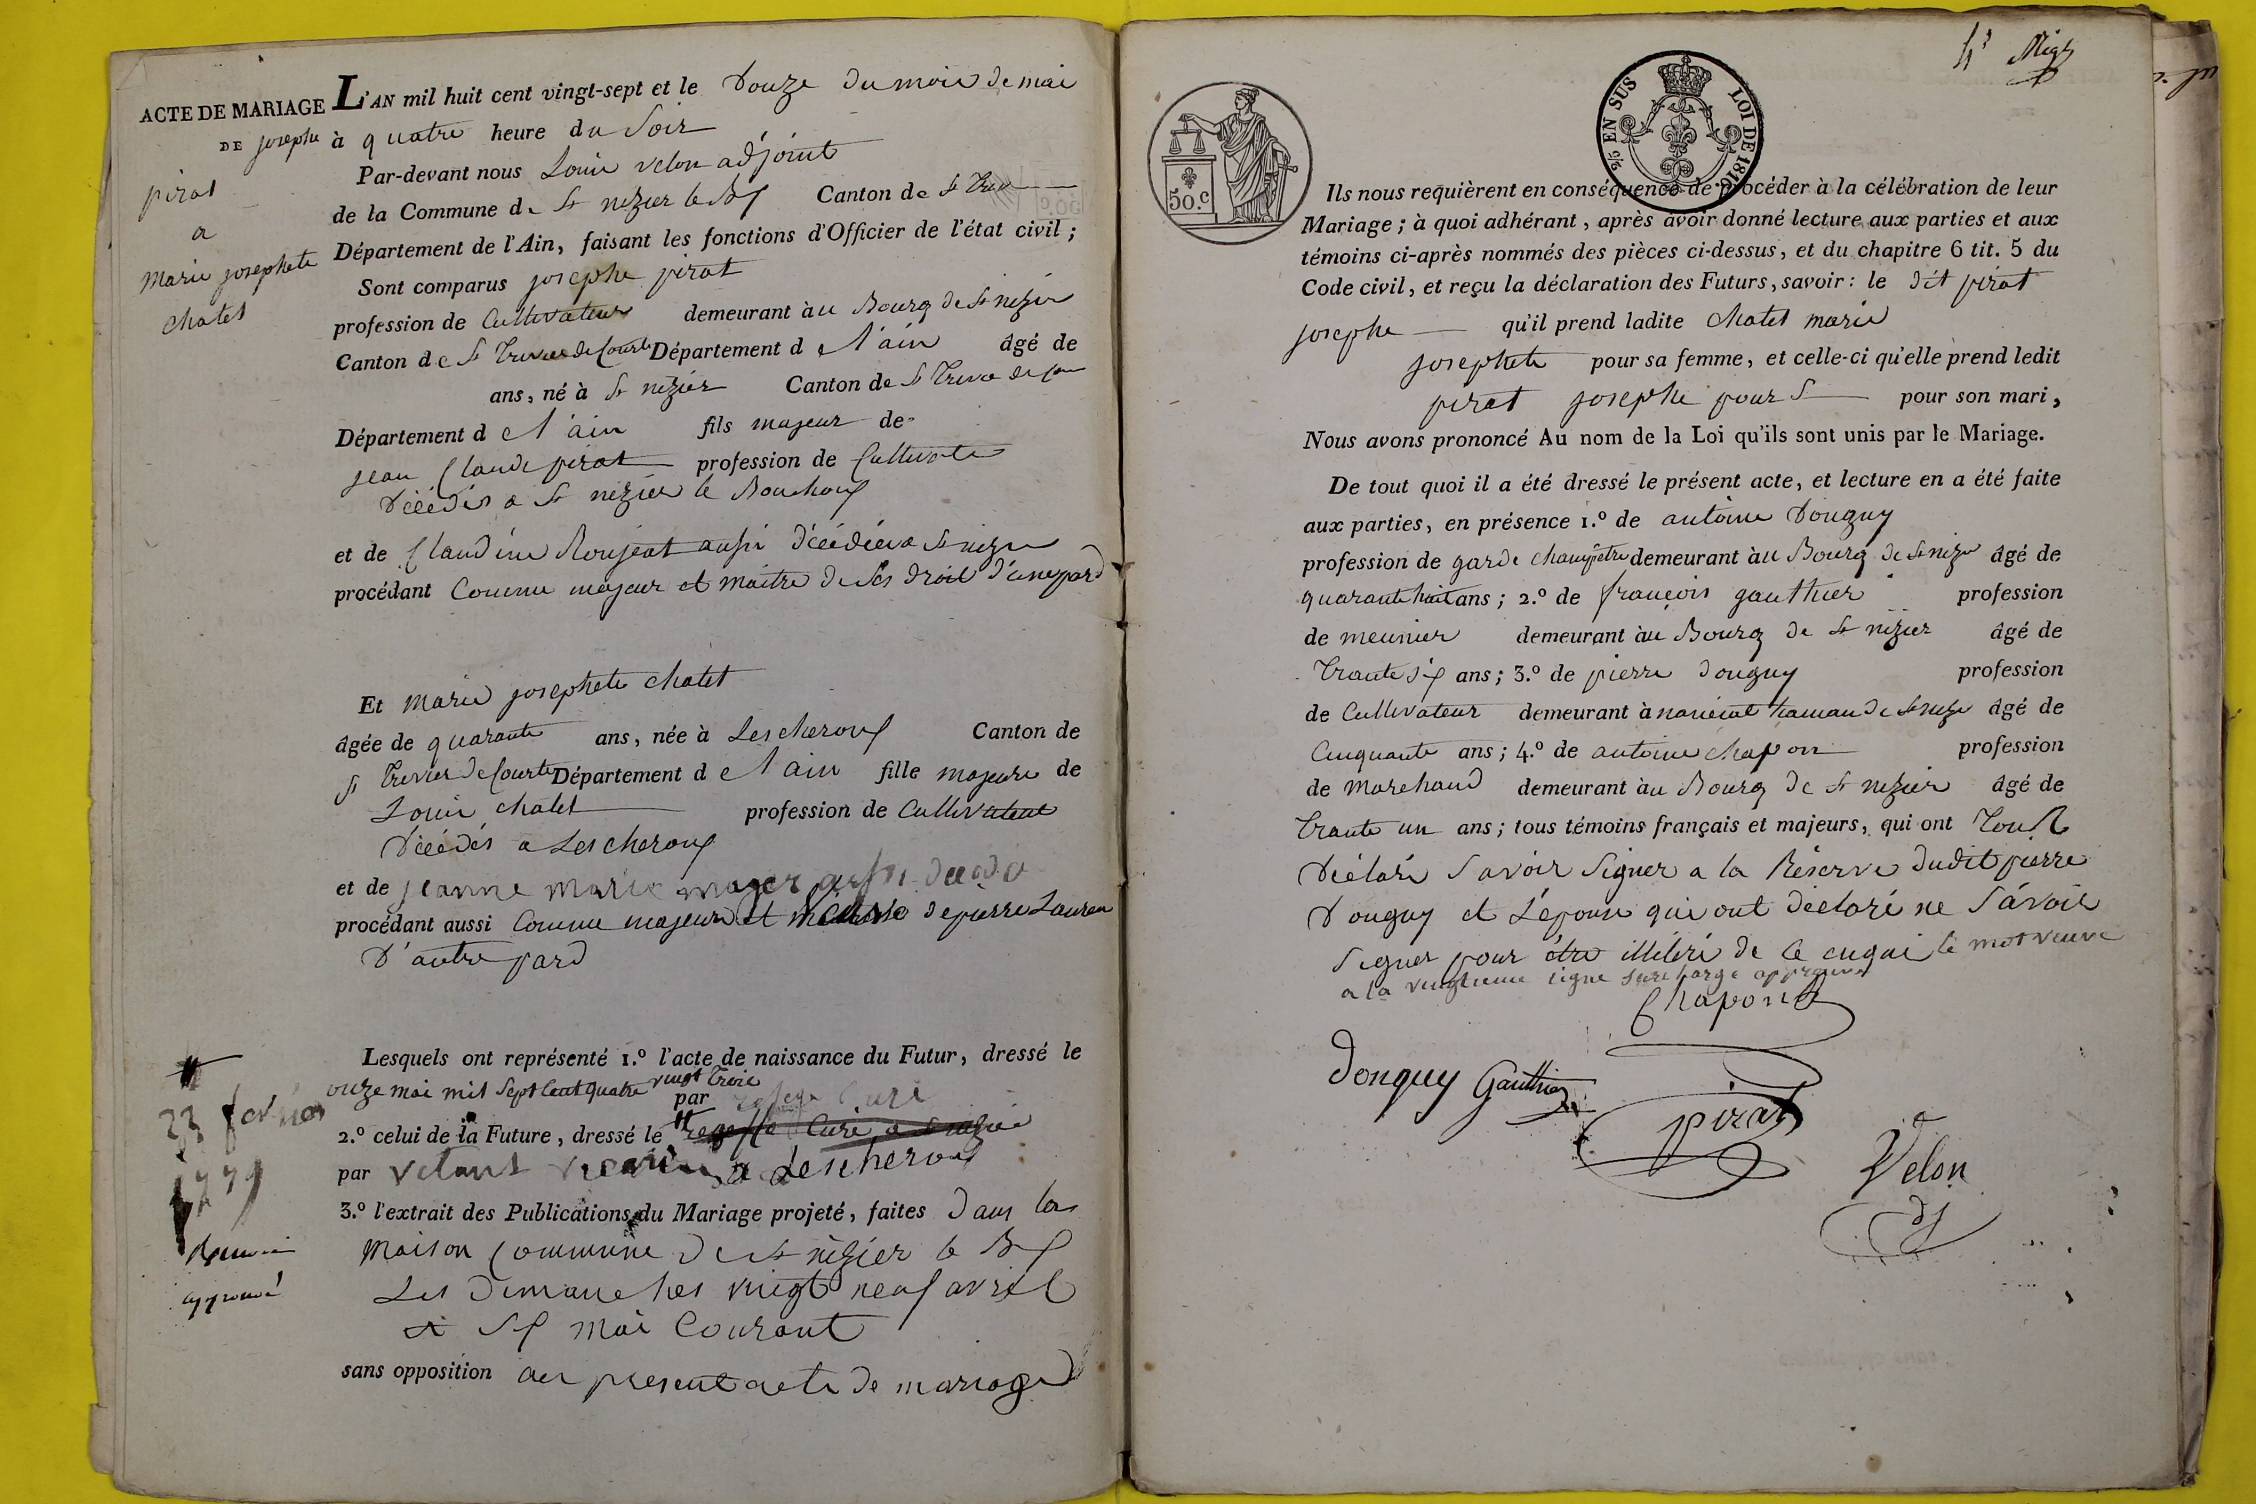 ACTE DE MARIAGE
DE josephe
pirat
a
Marie josephete
chatet
L'AN mil huit cent vingt-sept et le Douze du mois de mai
à quatre heure du Soir
Par-devant nous Louis velon adjoint
de la Commune de St nizier le Canton de St
Département de l'Ain, faisant les fonctions d'Officier de l'état civil ;
Sont comparus josephe pirat
profession de Cultivateur demeurant àu Bourg de St nizier
Canton de St Trivier de Courte Département de l'ain âgé de
ans, né à St nizier Canton de St Trivie de
Département de l'ain fils majeur de
jean Claude pirat profession de Cultivate
Décédés a St nizier le Bouchoux
et de Claudine Roujeat aussi décédée a St nizier
procédant Comme majeur et maitre de ses droit d'une pard
Et Marie josephete chatet
âgée de quarante ans, née à Lescheroux Canton de
St Trivier de Courte Département de l'ain fille majeure de
Louis chatet profession de Cultivateur
Décédés a Lescheroux
et de jeanne marie aussi
procédant aussi Comme majeure et de pierre
D'autre pard
Lesquels ont représenté 1.º l'acte de naissance du Futur, dressé le
onze mai mil sept Cent quatre vingt trois
par Curé
2.º celui de la Future, dressé le Curé a St nizier
par a Lescheroux
23 fevrier
1779
approuvé
3.º l'extrait des Publications du Mariage projeté, faites Dans la
Maison Commune de St nizier le
Les Dimanches vingt neuf avril
et Six Mai Courant
sans opposition au present acte de mariage
50.C
2/5 EN SUS LOI DE 1816
Ils nous requièrent en conséquence de procéder à la célébration de leur
Mariage ; à quoi adhérant, après avoir donné lecture aux parties et aux
témoins ci-après nommés des pièces ci-dessus, et du chapitre 6 tit. 5 du
Code civil, et reçu la déclaration des Futurs, savoir : le dit pirat
josephe qu'il prend ladite chatet marie
josephete pour sa femme, et celle-ci qu'elle prend ledit
pirat josephe pour son mari,
Nous avons prononcé Au nom de la Loi qu'ils sont unis par le Mariage.
De tout quoi il a été dressé le présent acte, et lecture en a été faite
aux parties, en présence 1.º de antoine Donguy
profession de garde champêtre demeurant àu Bourg de St nizier âgé de
quarante huit ans ; 2.º de françois gauthier profession
de meunier demeurant àu Bourg de St nizier âgé de
Trante Six ans ; 3.º de pierre donguy profession
de Cultivateur demeurant à hamau de St nizie âgé de
Cinquante ans ; 4.º de antoine chapon profession
de Marchand demeurant àu Bourg de St nizier âgé de
Trante un ans ; tous témoins français et majeurs, qui ont Tous
Déclaré Savoir Signer a la Réserve dudit pierre
Donguy et L'epouse qui ont déclaré ne Savoir
Signer pour étre illitéré de Ce enquis le mot veuve
a la vingtieme ligne Surchargé approuvé
Chapon
Donguy Gauthier
pirat
Velon